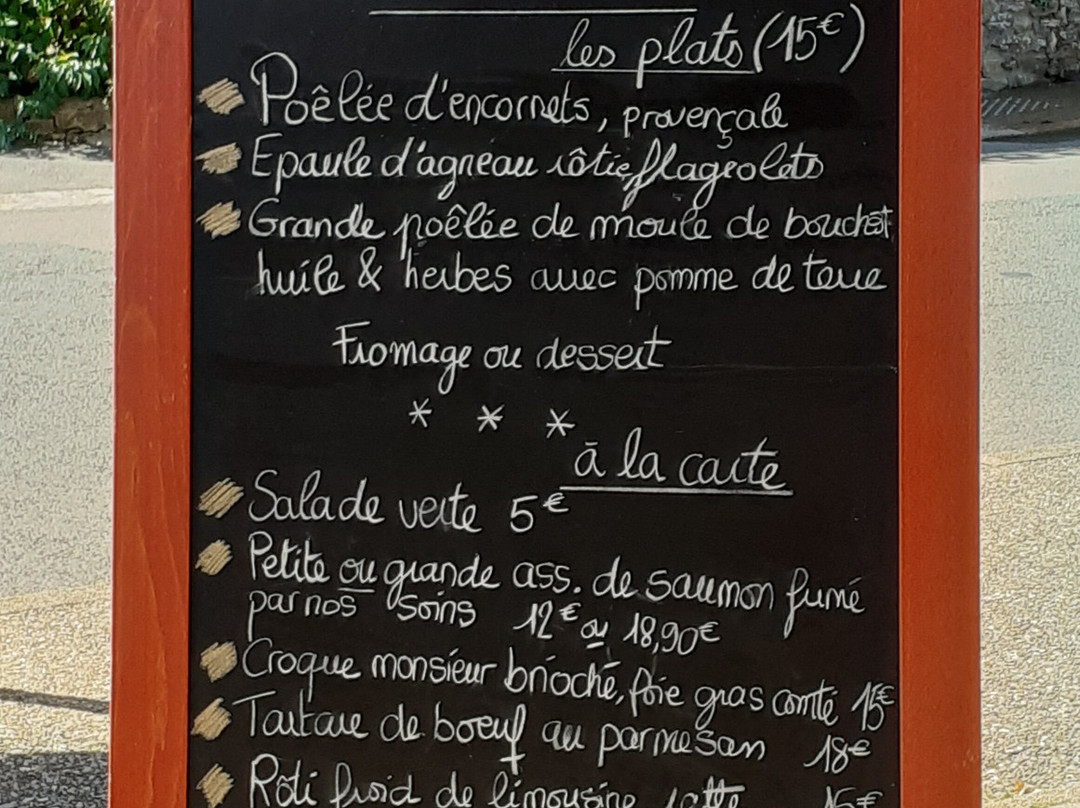 les plats (15€)
Poêlée d'encornets, provençale
Epaule d'agneau rôtie, flageolets
Grande poêlée de moule de bouchot
huile & herbes avec pomme de terre
Fromage ou dessert
* * *
à la carte
Salade verte 5€
Petite ou grande ass. de saumon fumé
par nos soins 12€ ou 18,90€
Croque monsieur brioché, foie gras comté 15€
Tartare de boeuf au parmesan 18€
Rôti froid de limousine